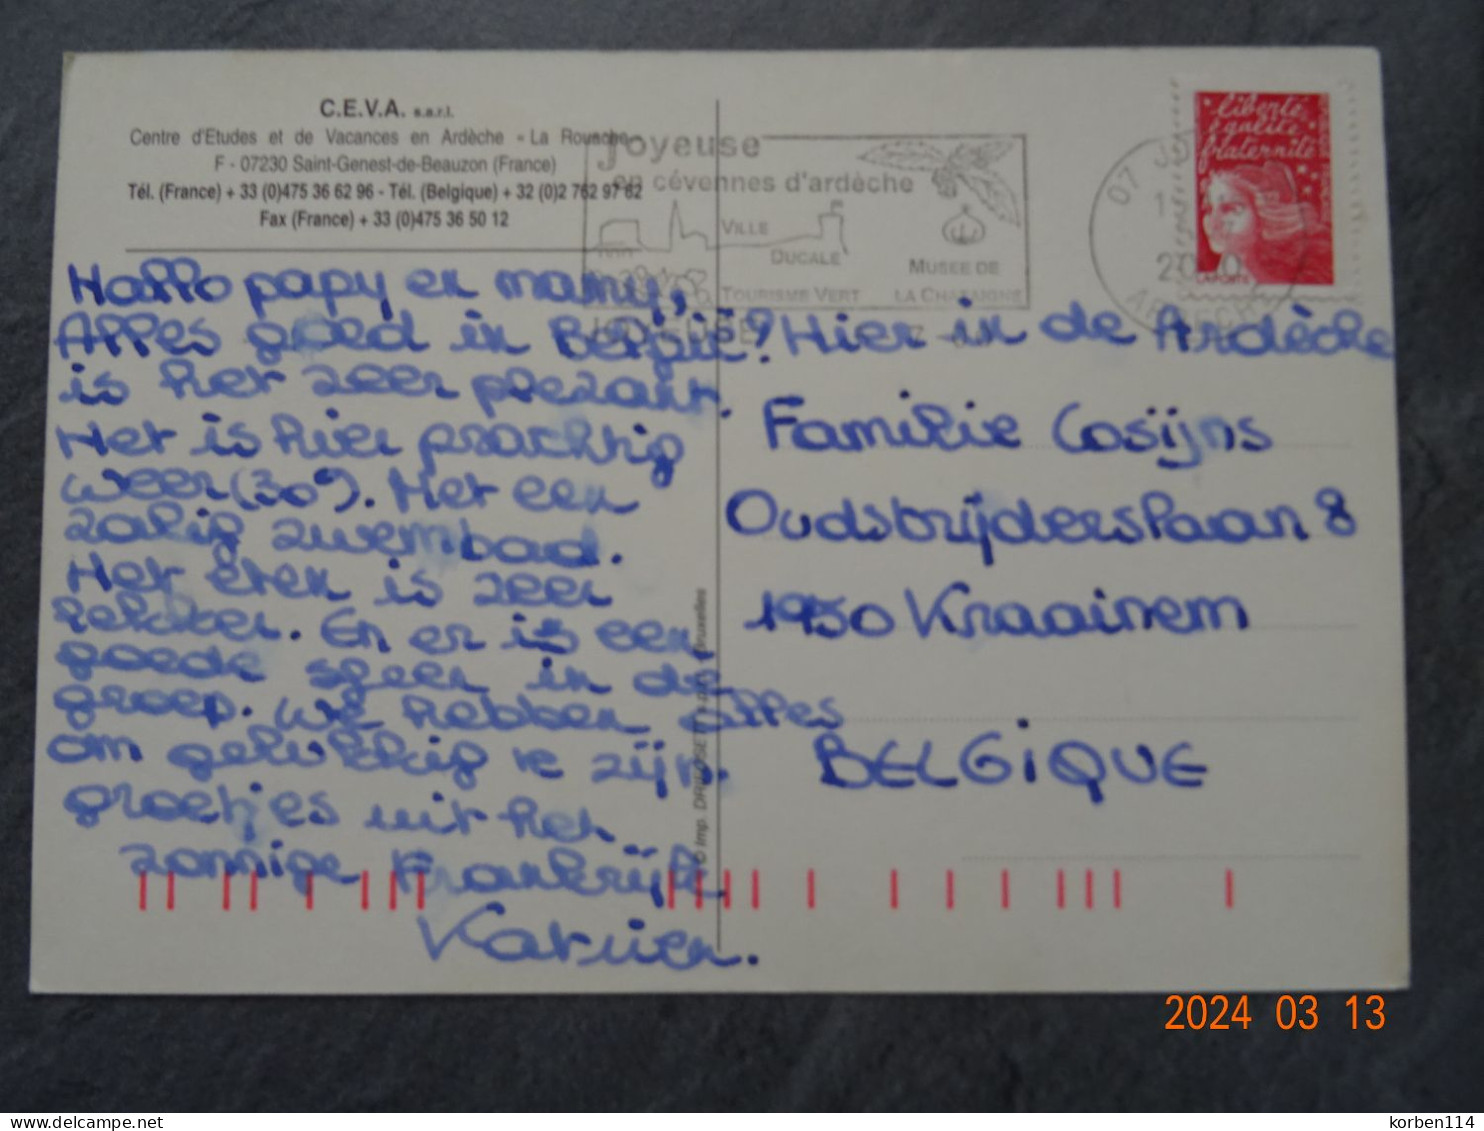 C.E.V.A. s.a.r.l.
Centre d'Etudes et de Vacances en Ardèche « La Rouache
F - 07230 Saint-Genest-de-Beauzon (France)
Tél. (France) + 33 (0)475 36 62 96 - Tél. (Belgique) + 32 (0)2 762 97 62
Fax (France) + 33 (0)475 36 50 12
Joyeuse
en cévennes d'ardèche
VILLE
DUCALE
MUSEE DE
TOURISME VERT LA CHATAIGNE
07
ARDECHE
liberté
égalité
fraternité
LA POSTE
Hallo papy en mamy,
Alles goed in België? Hier in de Ardèche
is het zeer plezant.
Het is hier prachtig
weer (30°). Met een
zalig zwembad.
Het eten is zeer
lekker. En er is een
goede sfeer in de
groep. We hebben alles
om gelukkig te zijn.
groetjes uit het
zonnige Frankrijk
Katrien.
Familie Cosijns
Oudstrijderslaan 8
1950 Kraainem
BELGIQUE
© Imp. Bruxelles
2024 03 13
korben114